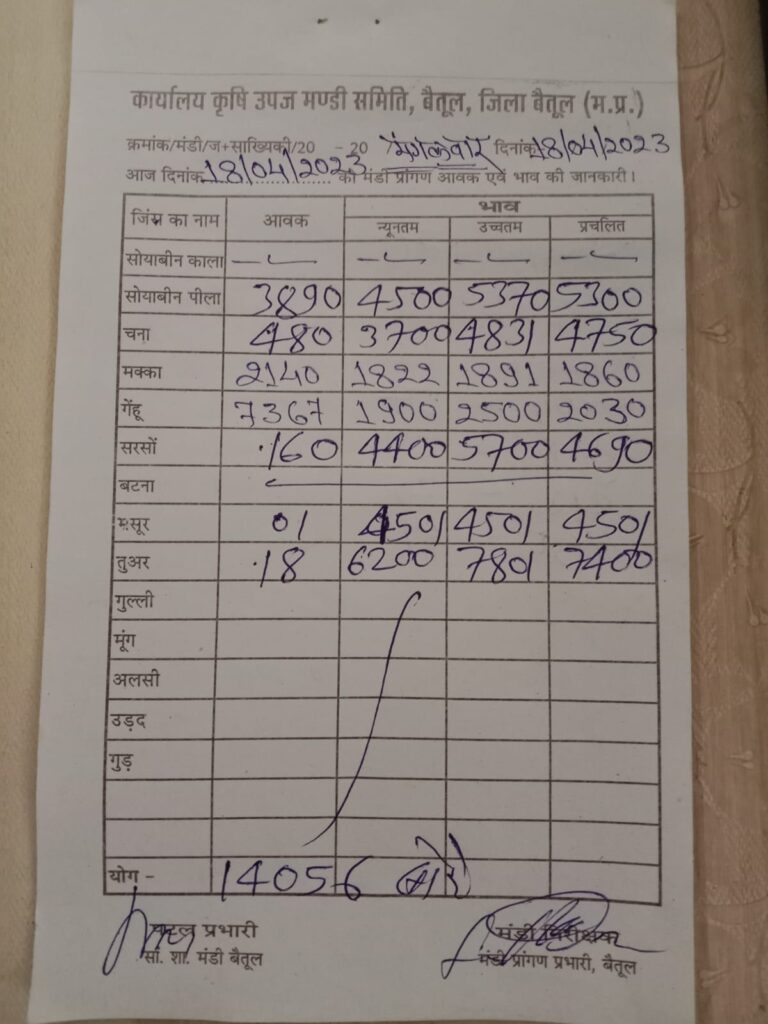 कार्यालय कृषि उपज मण्डी समिति, बैतूल, जिला बैतूल (म.प्र.)
क्रमांक/मंडी/ज+साख्यिकी/20 - 20 मंगलवार दिनांक 18/04/2023
आज दिनांक 18/04/2023 को मंडी प्रांगण आवक एवं भाव की जानकारी।
जिंस का नाम आवक भाव
न्यूनतम उच्चतम प्रचलित
सोयाबीन काला
सोयाबीन पीला 3890 4500 5370 5300
चना 480 3700 4831 4750
मक्का 2140 1822 1891 1860
गेंहू 7367 1900 2500 2030
सरसों .160 4400 5700 4690
बटना
मसूर 01 4501 4501 4501
तुअर .18 6200 7801 7400
गुल्ली
मूंग
अलसी
उड़द
गुड़
योग - 14056 बोरे
प्रभारी
सां. शा. मंडी बैतूल
मंडी निरीक्षक
मंडी प्रांगण प्रभारी, बैतूल